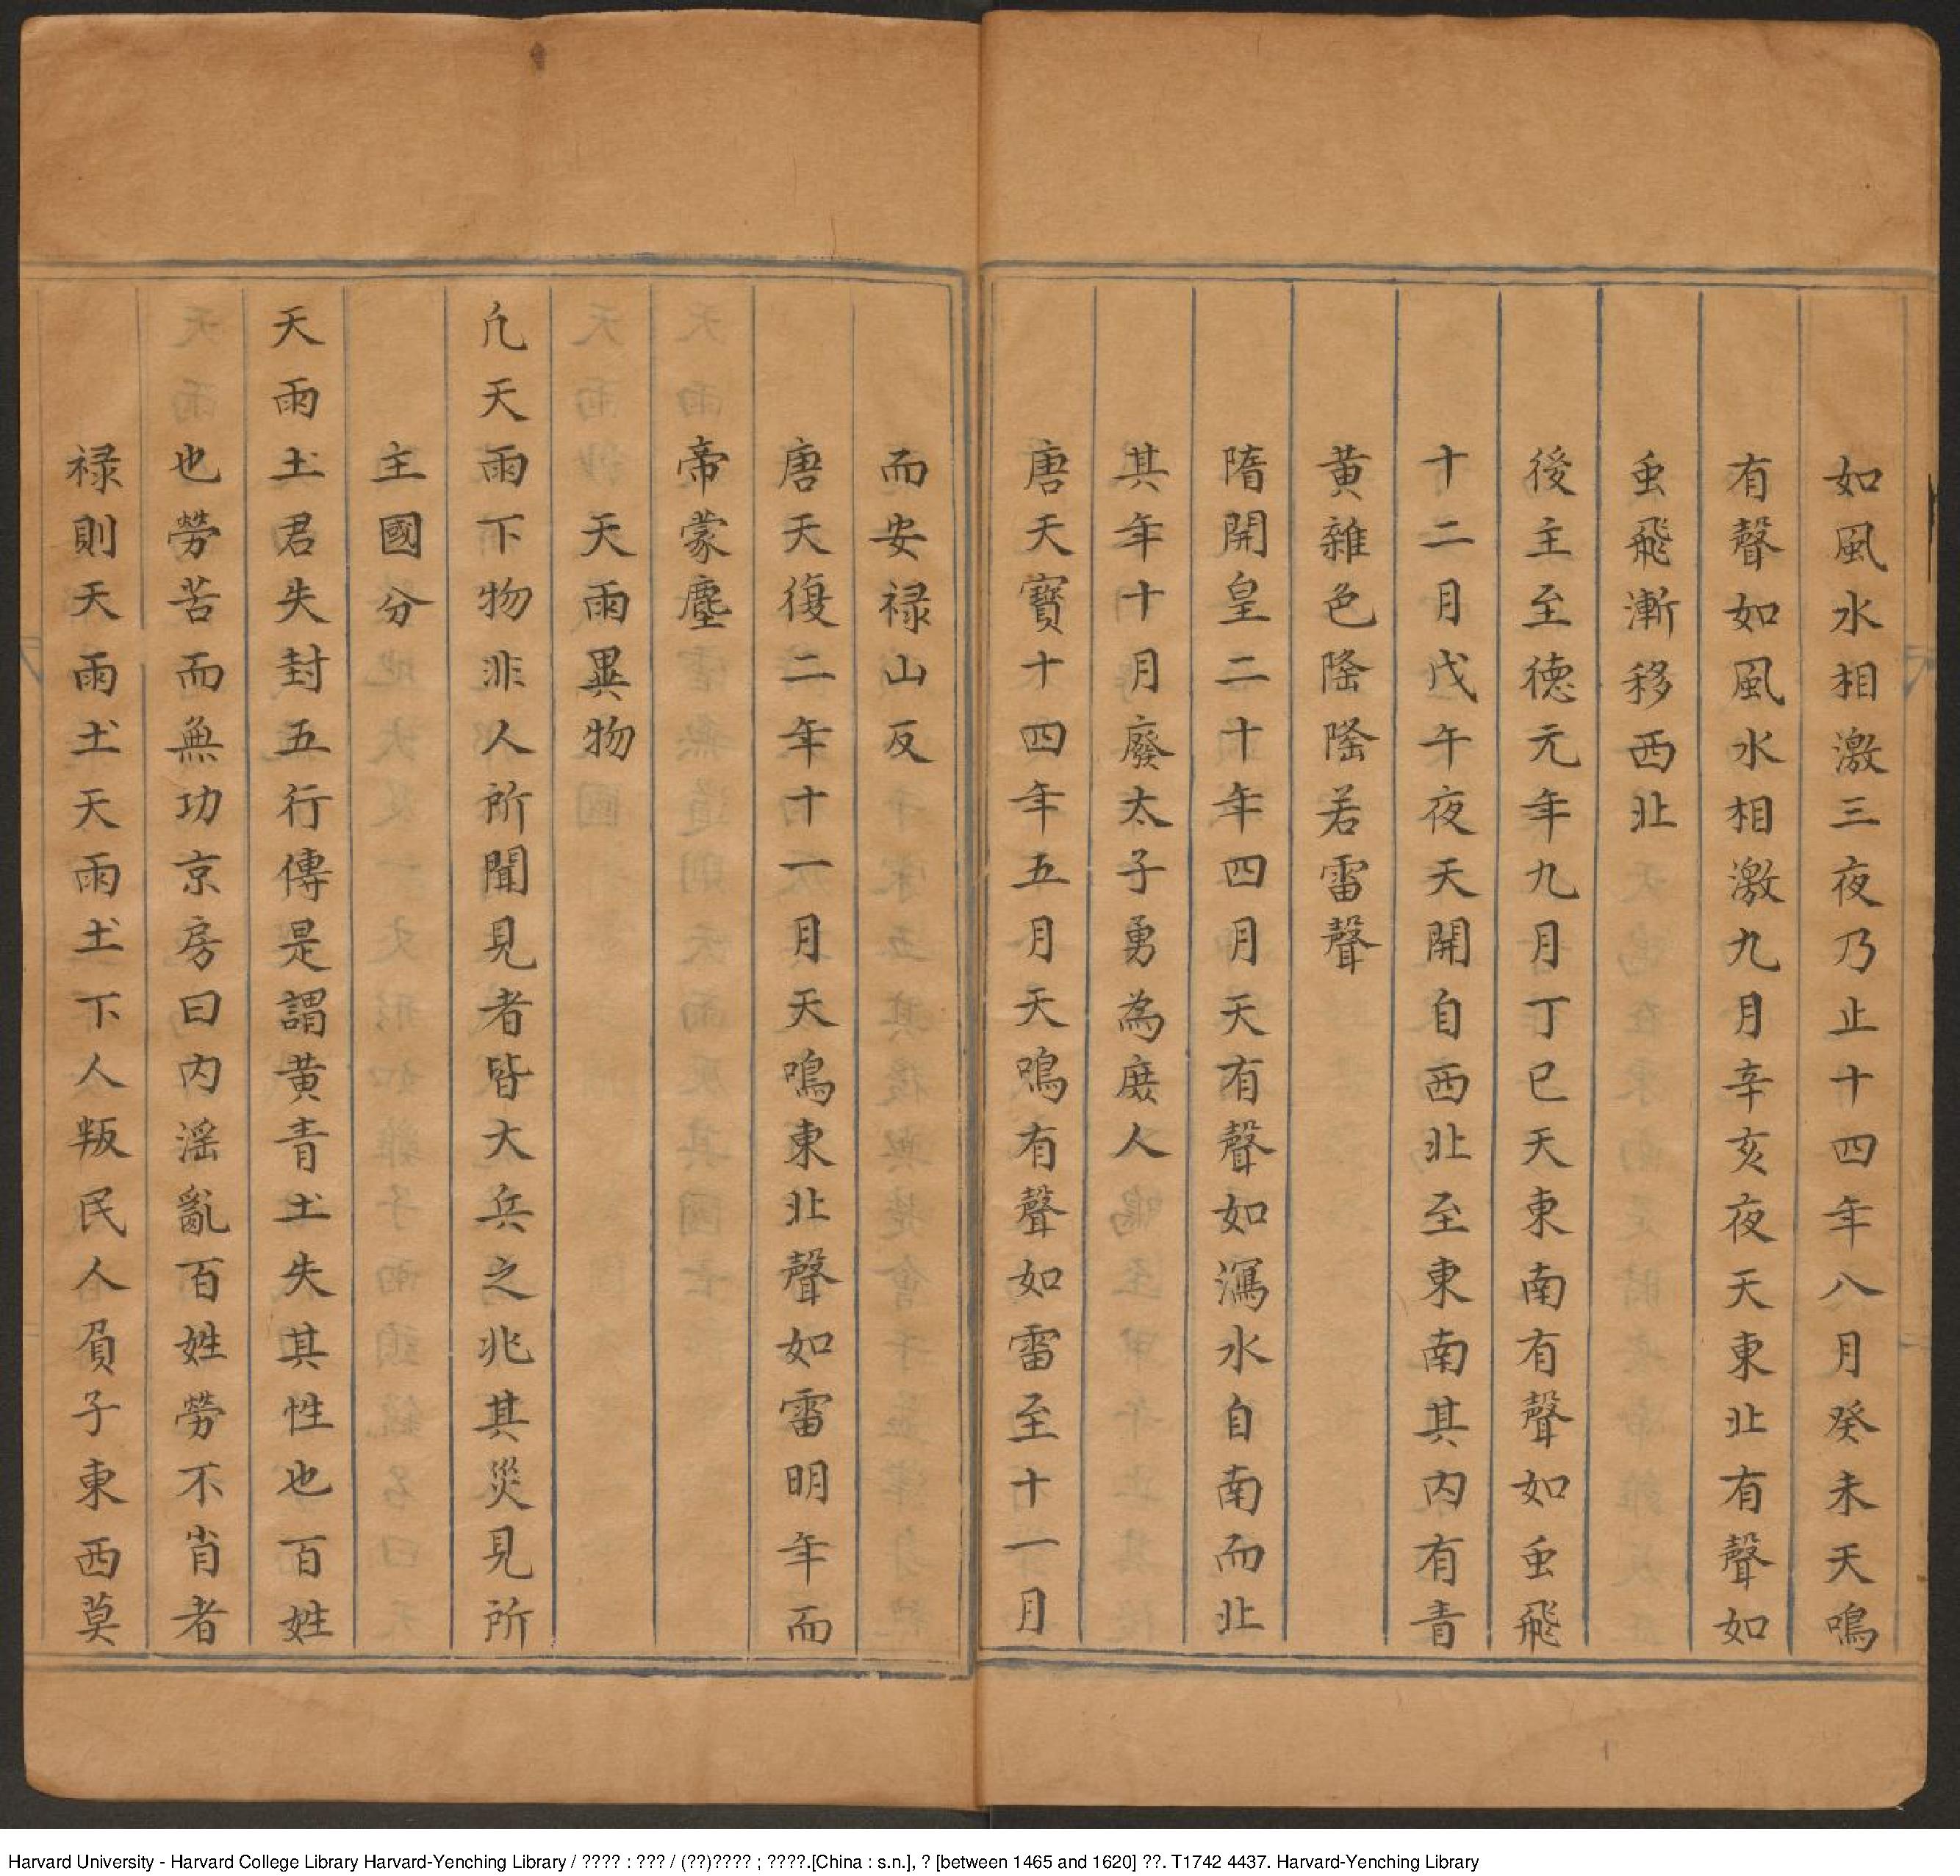 如風水相激三夜乃止十四年八月癸未天鳴
有聲如風水相激九月辛亥夜天東北有聲如
虫飛漸移西北
後主至德元年九月丁巳天東南有聲如虫飛
十二月戊午夜天開自西北至東南其内有青
黄雜色隆隆若雷聲
隋開皇二十年四月天有聲如瀉水自南而北
其年十月廢太子勇為庶人
唐天寶十四年五月天鳴有聲如雷至十一月
而安禄山反
唐天復二年十一月天鳴東北聲如雷明年而
帝蒙塵
天雨異物
凢天雨下物非人所聞見者皆大兵之兆其災見所
主國分
天雨土君失封五行傳是謂黄青土失其性也百姓
也勞苦而無功京房曰内滛亂百姓勞不肖者
禄則天雨土天雨土下人叛民人負子東西莫
Harvard University - Harvard College Library Harvard-Yenching Library / ???? : ??? / (??)???? ; ????.[China : s.n.], ? [between 1465 and 1620] ??. T1742 4437. Harvard-Yenching Library